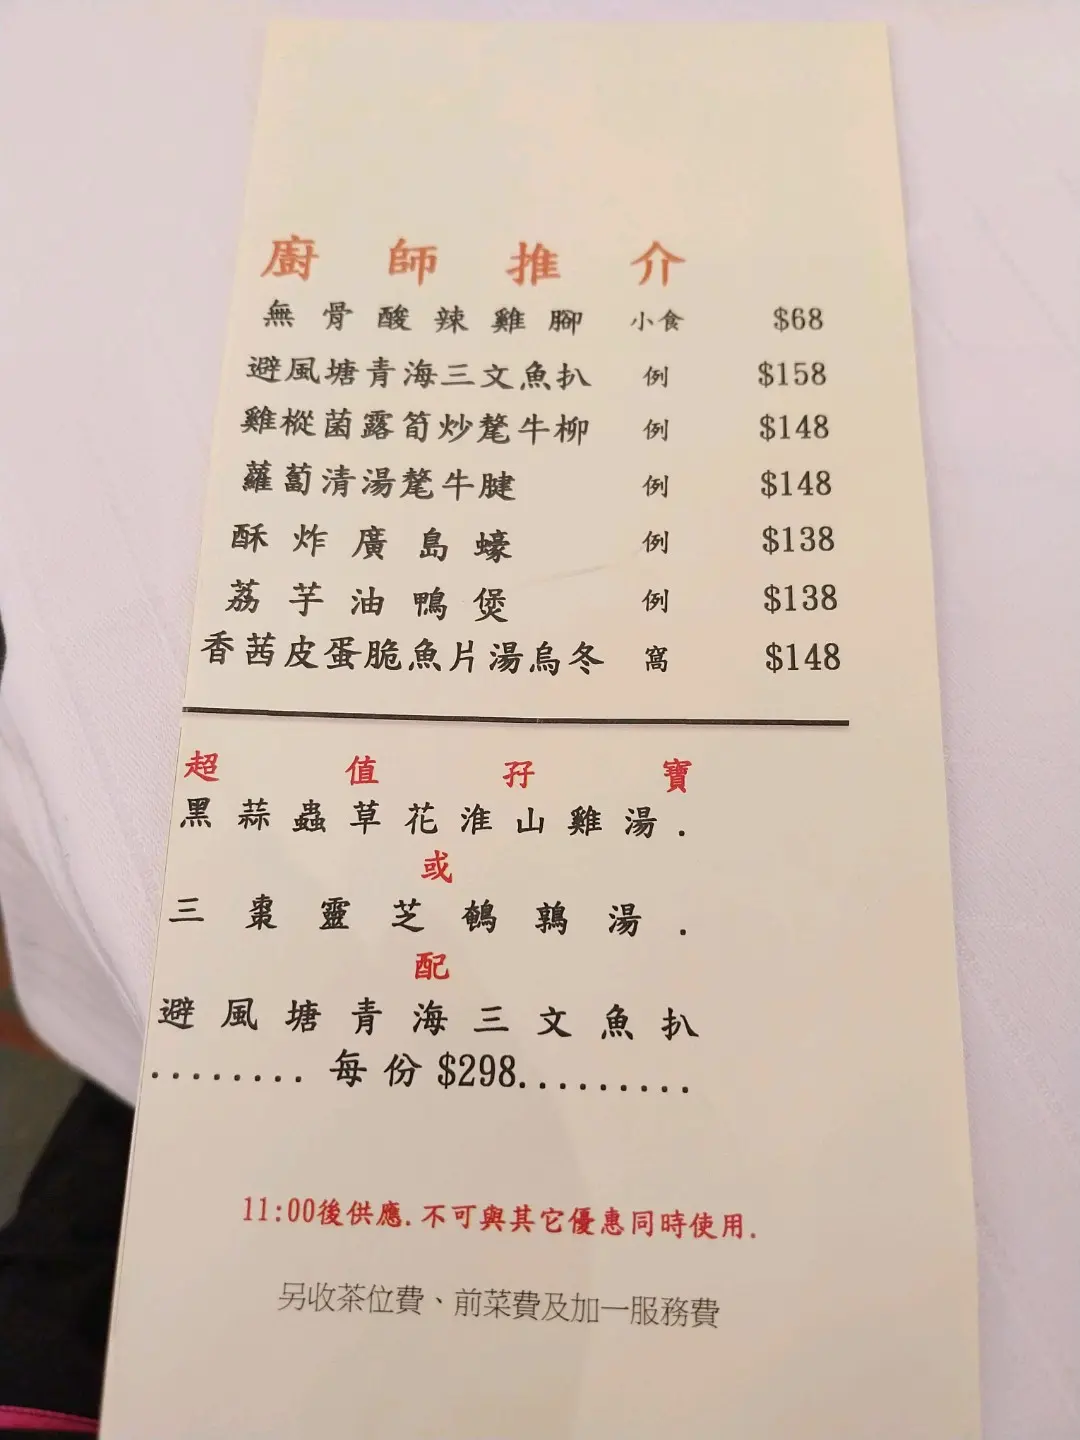 廚師推介
無骨酸辣雞腳 小食 $68
避風塘青海三文魚扒 例 $158
雞樅菌露筍炒氂牛柳 例 $148
蘿蔔清湯氂牛腱 例 $148
酥炸廣島蠔 例 $138
荔芋油鴨煲 例 $138
香茜皮蛋脆魚片湯烏冬 窩 $148
超值孖寶
黑蒜蟲草花淮山雞湯.
或
三棗靈芝鵪鶉湯.
配
避風塘青海三文魚扒
........每份$298.........
11:00後供應.不可與其它優惠同時使用.
另收茶位費、前菜費及加一服務費